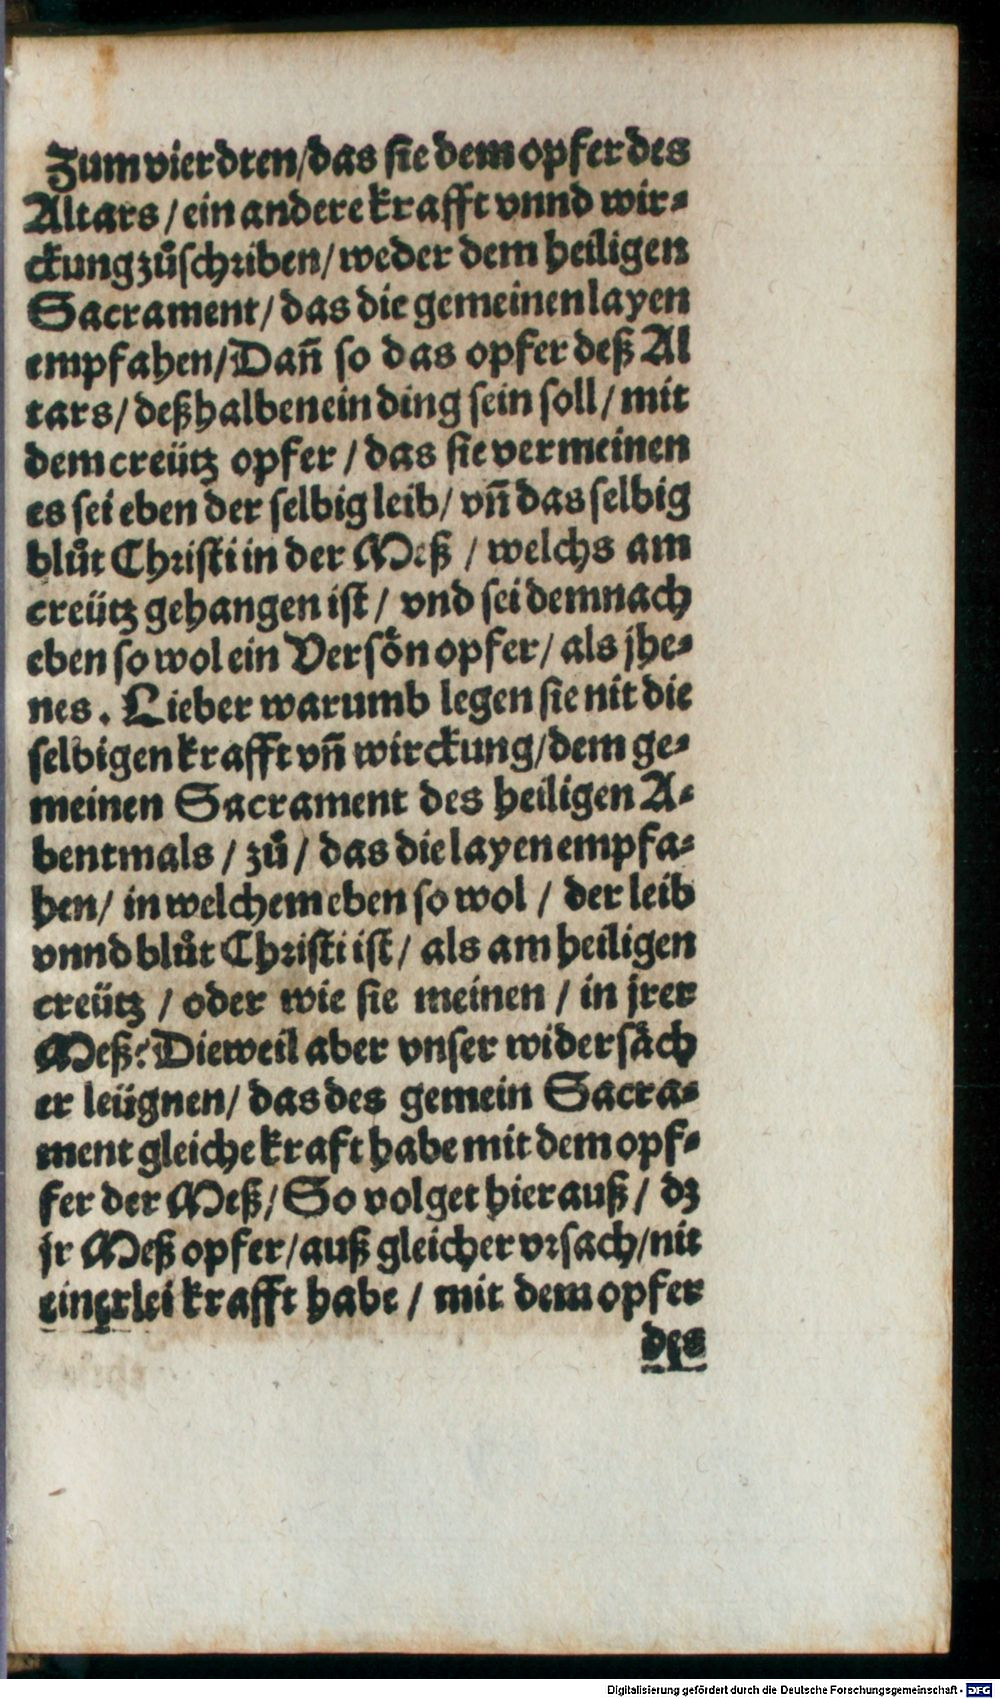 Zum vierdten/das sie dem opfer des
Altars/ein andere krafft vnnd wir⸗
ckung zuͦschriben/weder dem heiligen
Sacrament/das die gemeinen layen
empfahen/Dañ so das opfer deß Al
tars/deßhalben ein ding sein soll/mit
dem creütz opfer/das sie vermeinen
es sei eben der selbig leib/vñ das selbig
bluͦt Christi in der Meß/welchs am
creütz gehangen ist/vnd sei demnach
eben so wol ein Versoͤn opfer/als jhe⸗
nes. Lieber warumb legen sie nit die
selbigen krafft vñ wirckung/dem ge⸗
meinen Sacrament des heiligen A⸗
bentmals/zuͦ/das die layen empfa⸗
hen/in welchem eben so wol/der leib
vnnd bluͦt Christi ist/als am heiligen
creütz/oder wie sie meinen/in jrer
Meß? Dieweil aber vnser widersaͤch
er leügnen/das des gemein Sacra⸗
ment gleiche kraft habe mit dem opf⸗
fer der Meß/So volget hierauß/dz
jr Meß opfer/auß gleicher vrsach/nit
einerlei krafft habe/mit dem opfer
des
Digitalisierung gefördert durch die Deutsche Forschungsgemeinschaft - DFG